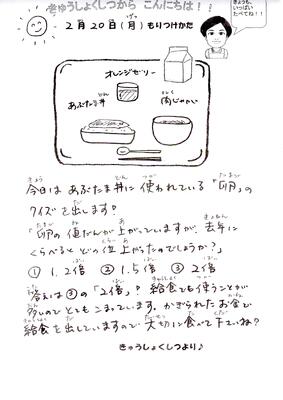 きゅうしょくしつから こんにちは!!
きょうも、
いっぱい
たべてね!!
2月20日(月)もりつけかた
オレンジゼリー
あぶたま丼
肉じゃが
今日は あぶたま丼に 使われている「卵」の
クイズを出します!
「卵の値だんが上がっていますが、去年に
くらべると どの位 上がったのでしょうか?」
① 1.2倍 ② 1.5倍 ③ 2倍
答えは③の「2倍」! 給食でも使うことが
多いので とてもこまっています。かぎられたお金で
給食を出していますので 大切に食べて下さいね?
きゅうしょくしつより♪